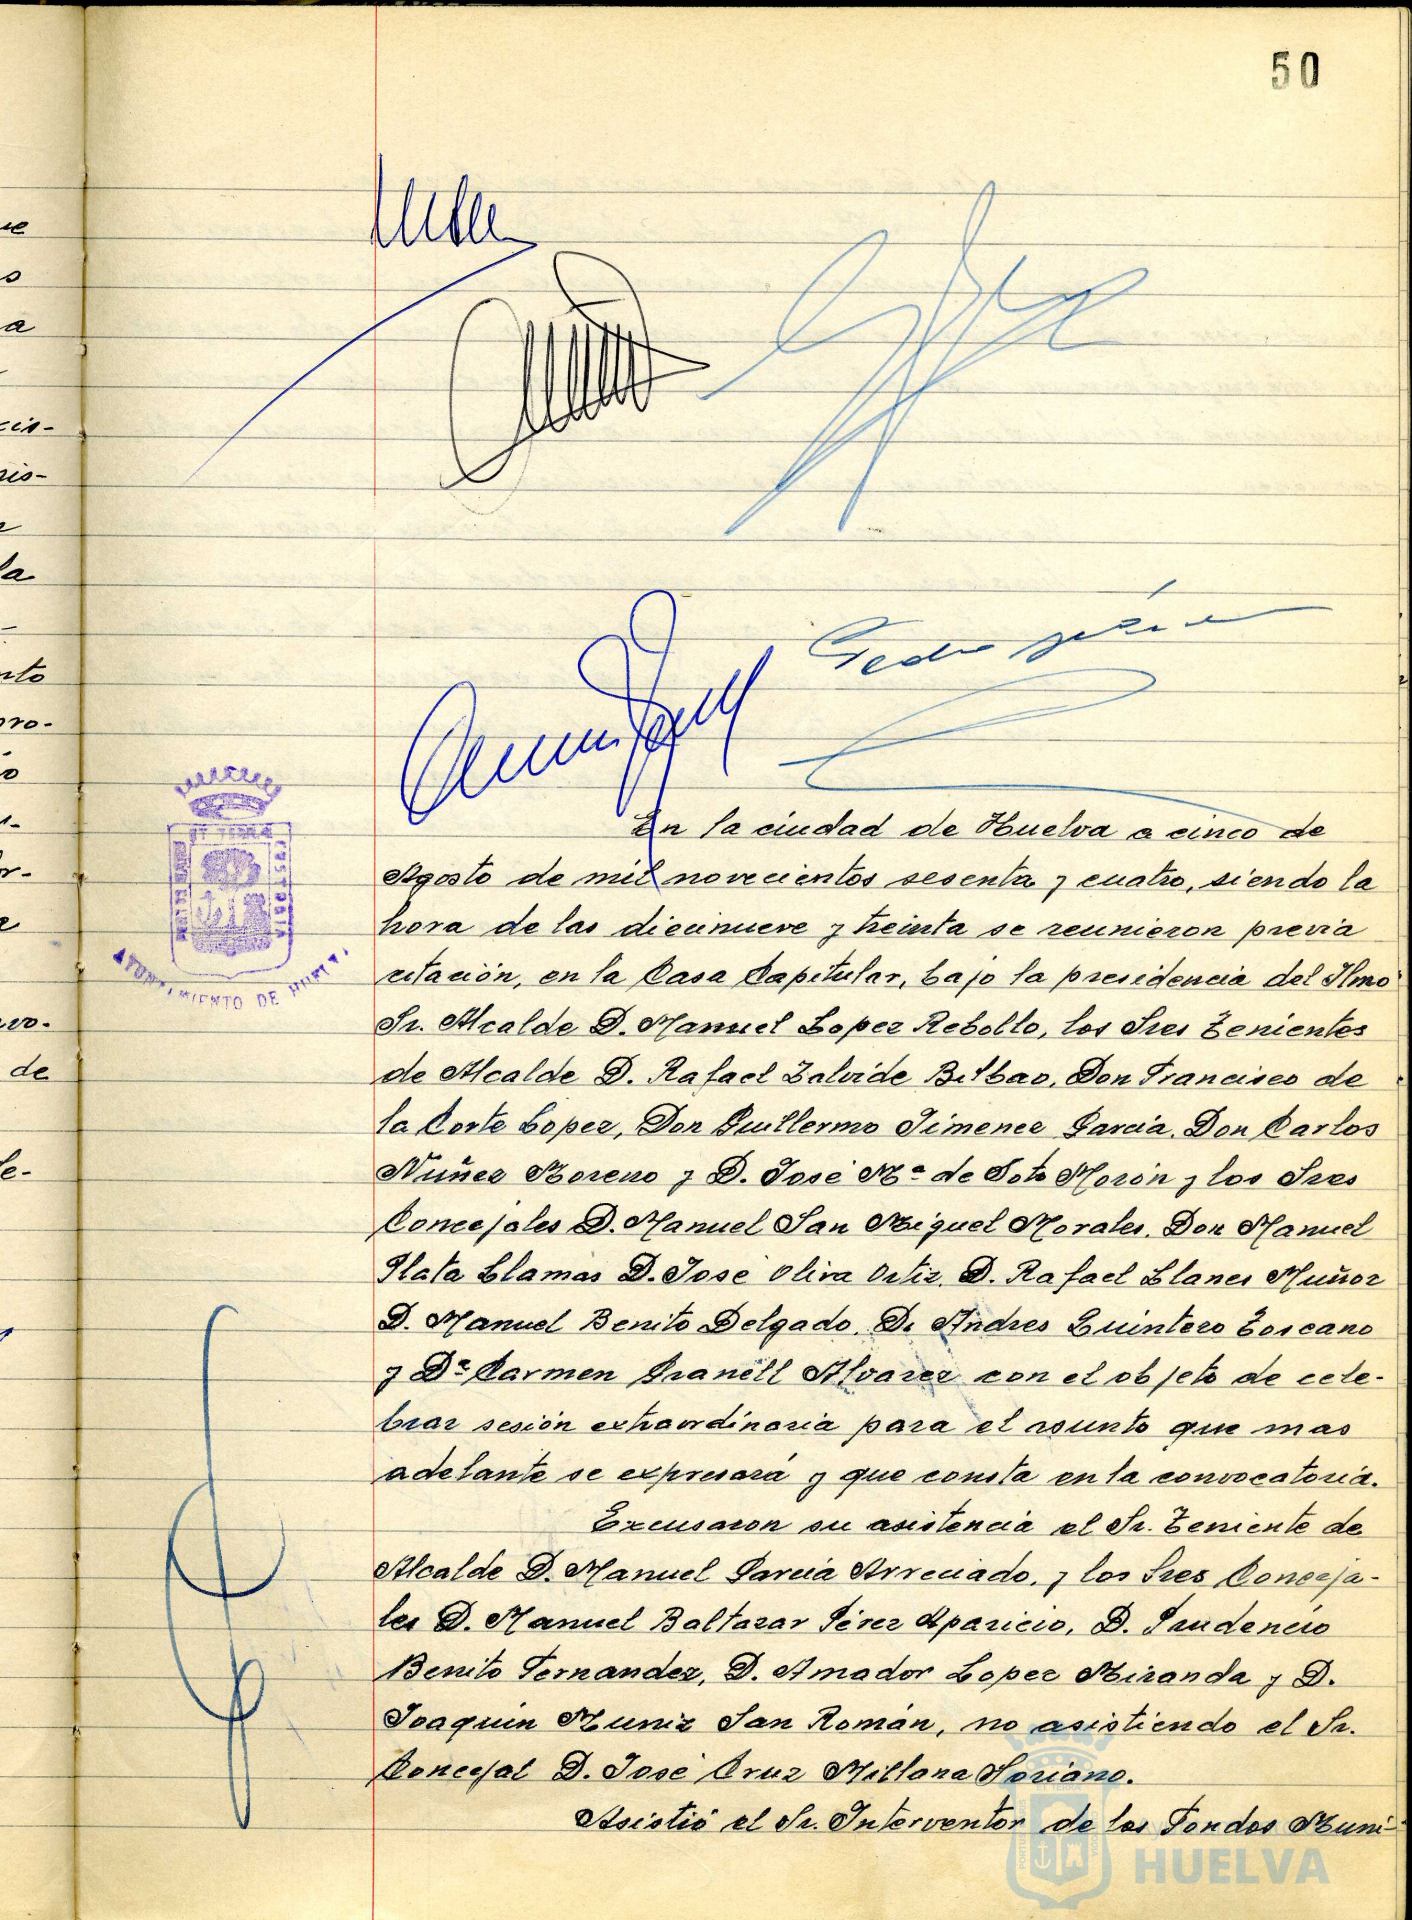 50
ue
s
a
cin-
nis-
la
nto
pro-
vo-
de
le-
Pedro
En la ciudad de Huelva a cinco de
Agosto de mil novecientos sesenta y cuatro, siendo la
hora de las diecinueve y treinta se reunieron previa
citación, en la Casa Capitular, bajo la presidencia del Ilmo
Sr. Alcalde D. Manuel Lopez Rebollo, los Sres Tenientes
de Alcalde D. Rafael Zalvide Bilbao, Don Francisco de
la Corte Lopez, Don Guillermo Jimenez Garcia, Don Carlos
Nuñez Moreno y D. José Mª de Soto Morón y los Sres
Concejales D. Manuel San Miguel Morales, Don Manuel
Plata Llamas D. Jose Oliva Ortiz, D. Rafael Llanes Muñoz
D. Manuel Benito Delgado, D. Andres Quintero Toscano
y Dª Carmen Granell Alvarez con el objeto de cele-
brar sesión extraordinaria para el asunto que mas
adelante se expresará y que consta en la convocatoria.
Excusaron su asistencia el Sr. Teniente de
Alcalde D. Manuel Garcia Arreciado, y los Sres Conceja-
les D. Manuel Baltasar Pérez Aparicio, D. Prudencio
Benito Fernandez, D. Amador Lopez Miranda y D.
Joaquin Muniz San Román, no asistiendo el Sr.
Concejal D. José Cruz Millana Soriano.
Asistió el Sr. Interventor de los Fondos Muni-
AYUNTAMIENTO DE HUELVA
HUELVA